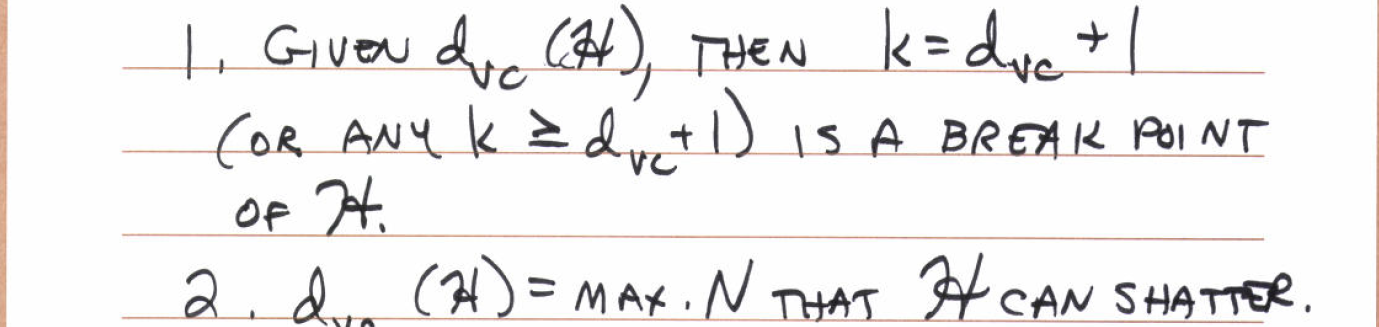 1. GIVEN d_VC (ℋ), THEN k = d_VC + 1
(OR ANY k ≥ d_VC + 1) IS A BREAK POINT
OF ℋ.
2. d_VC (ℋ) = MAX. N THAT ℋ CAN SHATTER.